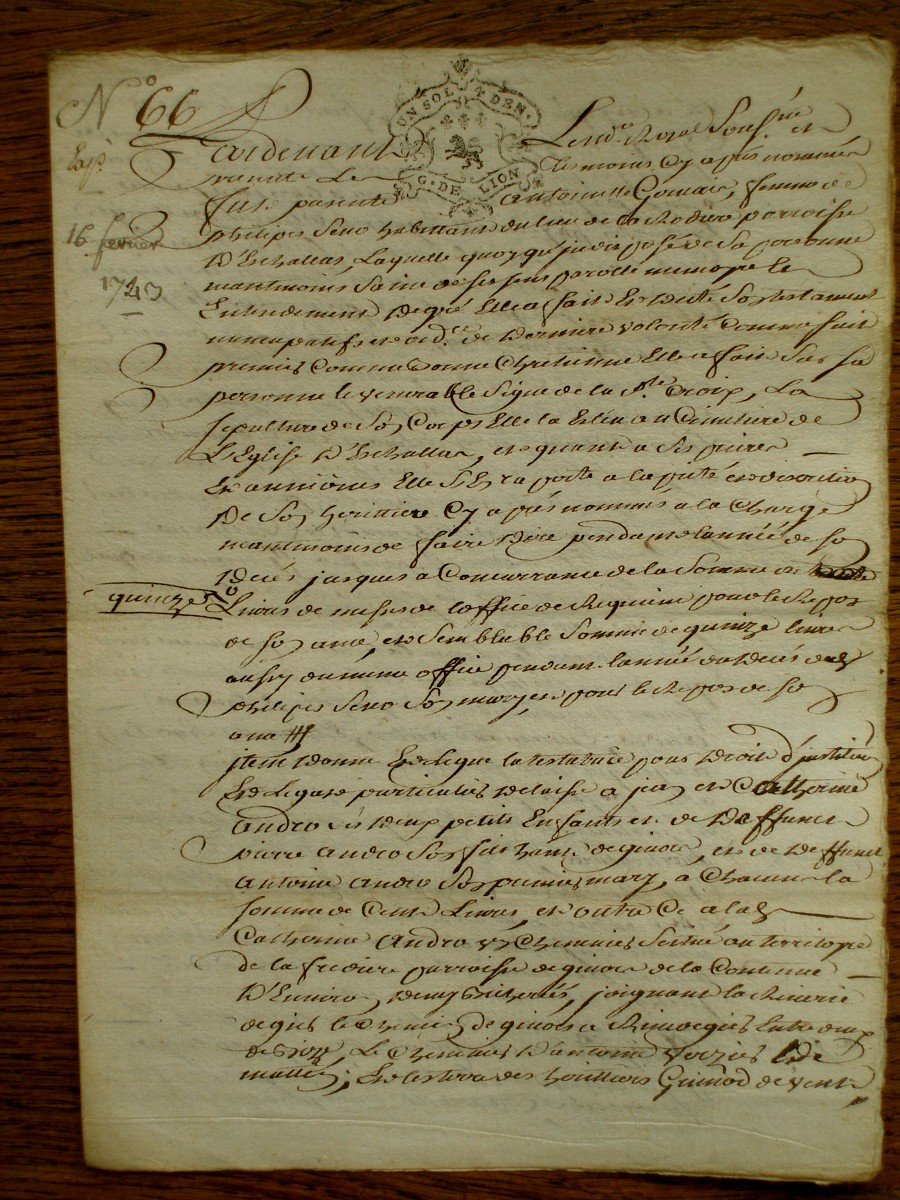 No 66
UN SOL 4 DEN.
G. DE LION
Expé
16 fevrier
1743
Pardevant Le no.re Royal Soussigné et
tesmoins Cy après nommés
fut presente Antoinette Goumie, femme de
philipes Seno habittans du lieu de la Rodiere parroisse
D'Echallas, Laquelle quoy qu'indisposée de Sa personne
neantmoins Saine de ses sens parolle memoire le
Entendement De gré Elle a fait Et Dicté Son testament
nuncupatif et ord.ce de Derniere volonté Comme suit
premier Comme bonne Chretienne Elle a fait Sur sa
personne le venerable Signe de la S.te Croix, La
sepulture de Son Corps Elle la Eslue au Cimetiere de
L'Eglise D'Echallas, et quand a Ses prieres
Et aumônes Elle S'En raporte a la pieté et devotion
De Son herittiere Cy après nommée a la Charge
neantmoins de faire Dire pendant l'année de son
Déces jusques a Concurrance de la Somme de
quinze Livres de messes de l'office de Requiem pour le Repos
de son ame, et Semblable Somme de quinze livres
aussy du meme office pendant l'année du Deces dud.
philipes Seno Son mary et pour le Repos de son
ame
item Donne Et legue la testatrice pour Droit d'institution
Et legat particulier Delaisse a jean et Catherine
Andro ses Deux petits Enfants et de Deffunct
pierre Andro Son fils habt. de givors, et de Deffunct
Antoine Andro Son premier mary, a Chacun la
somme de Cent Livres, et outre Ce a lad.
Catherine Andro un Cheminier Scitué au territoire
de la fredière parroisse de givors de la Contenue
D'Environ Demy Bicherée, joignant la
de gier le Chemin de givors a Rivedegiers Entre deux
de Bize, Le Cheminier D'antoine
matin; Et les terres des heritiers Guinod de vent